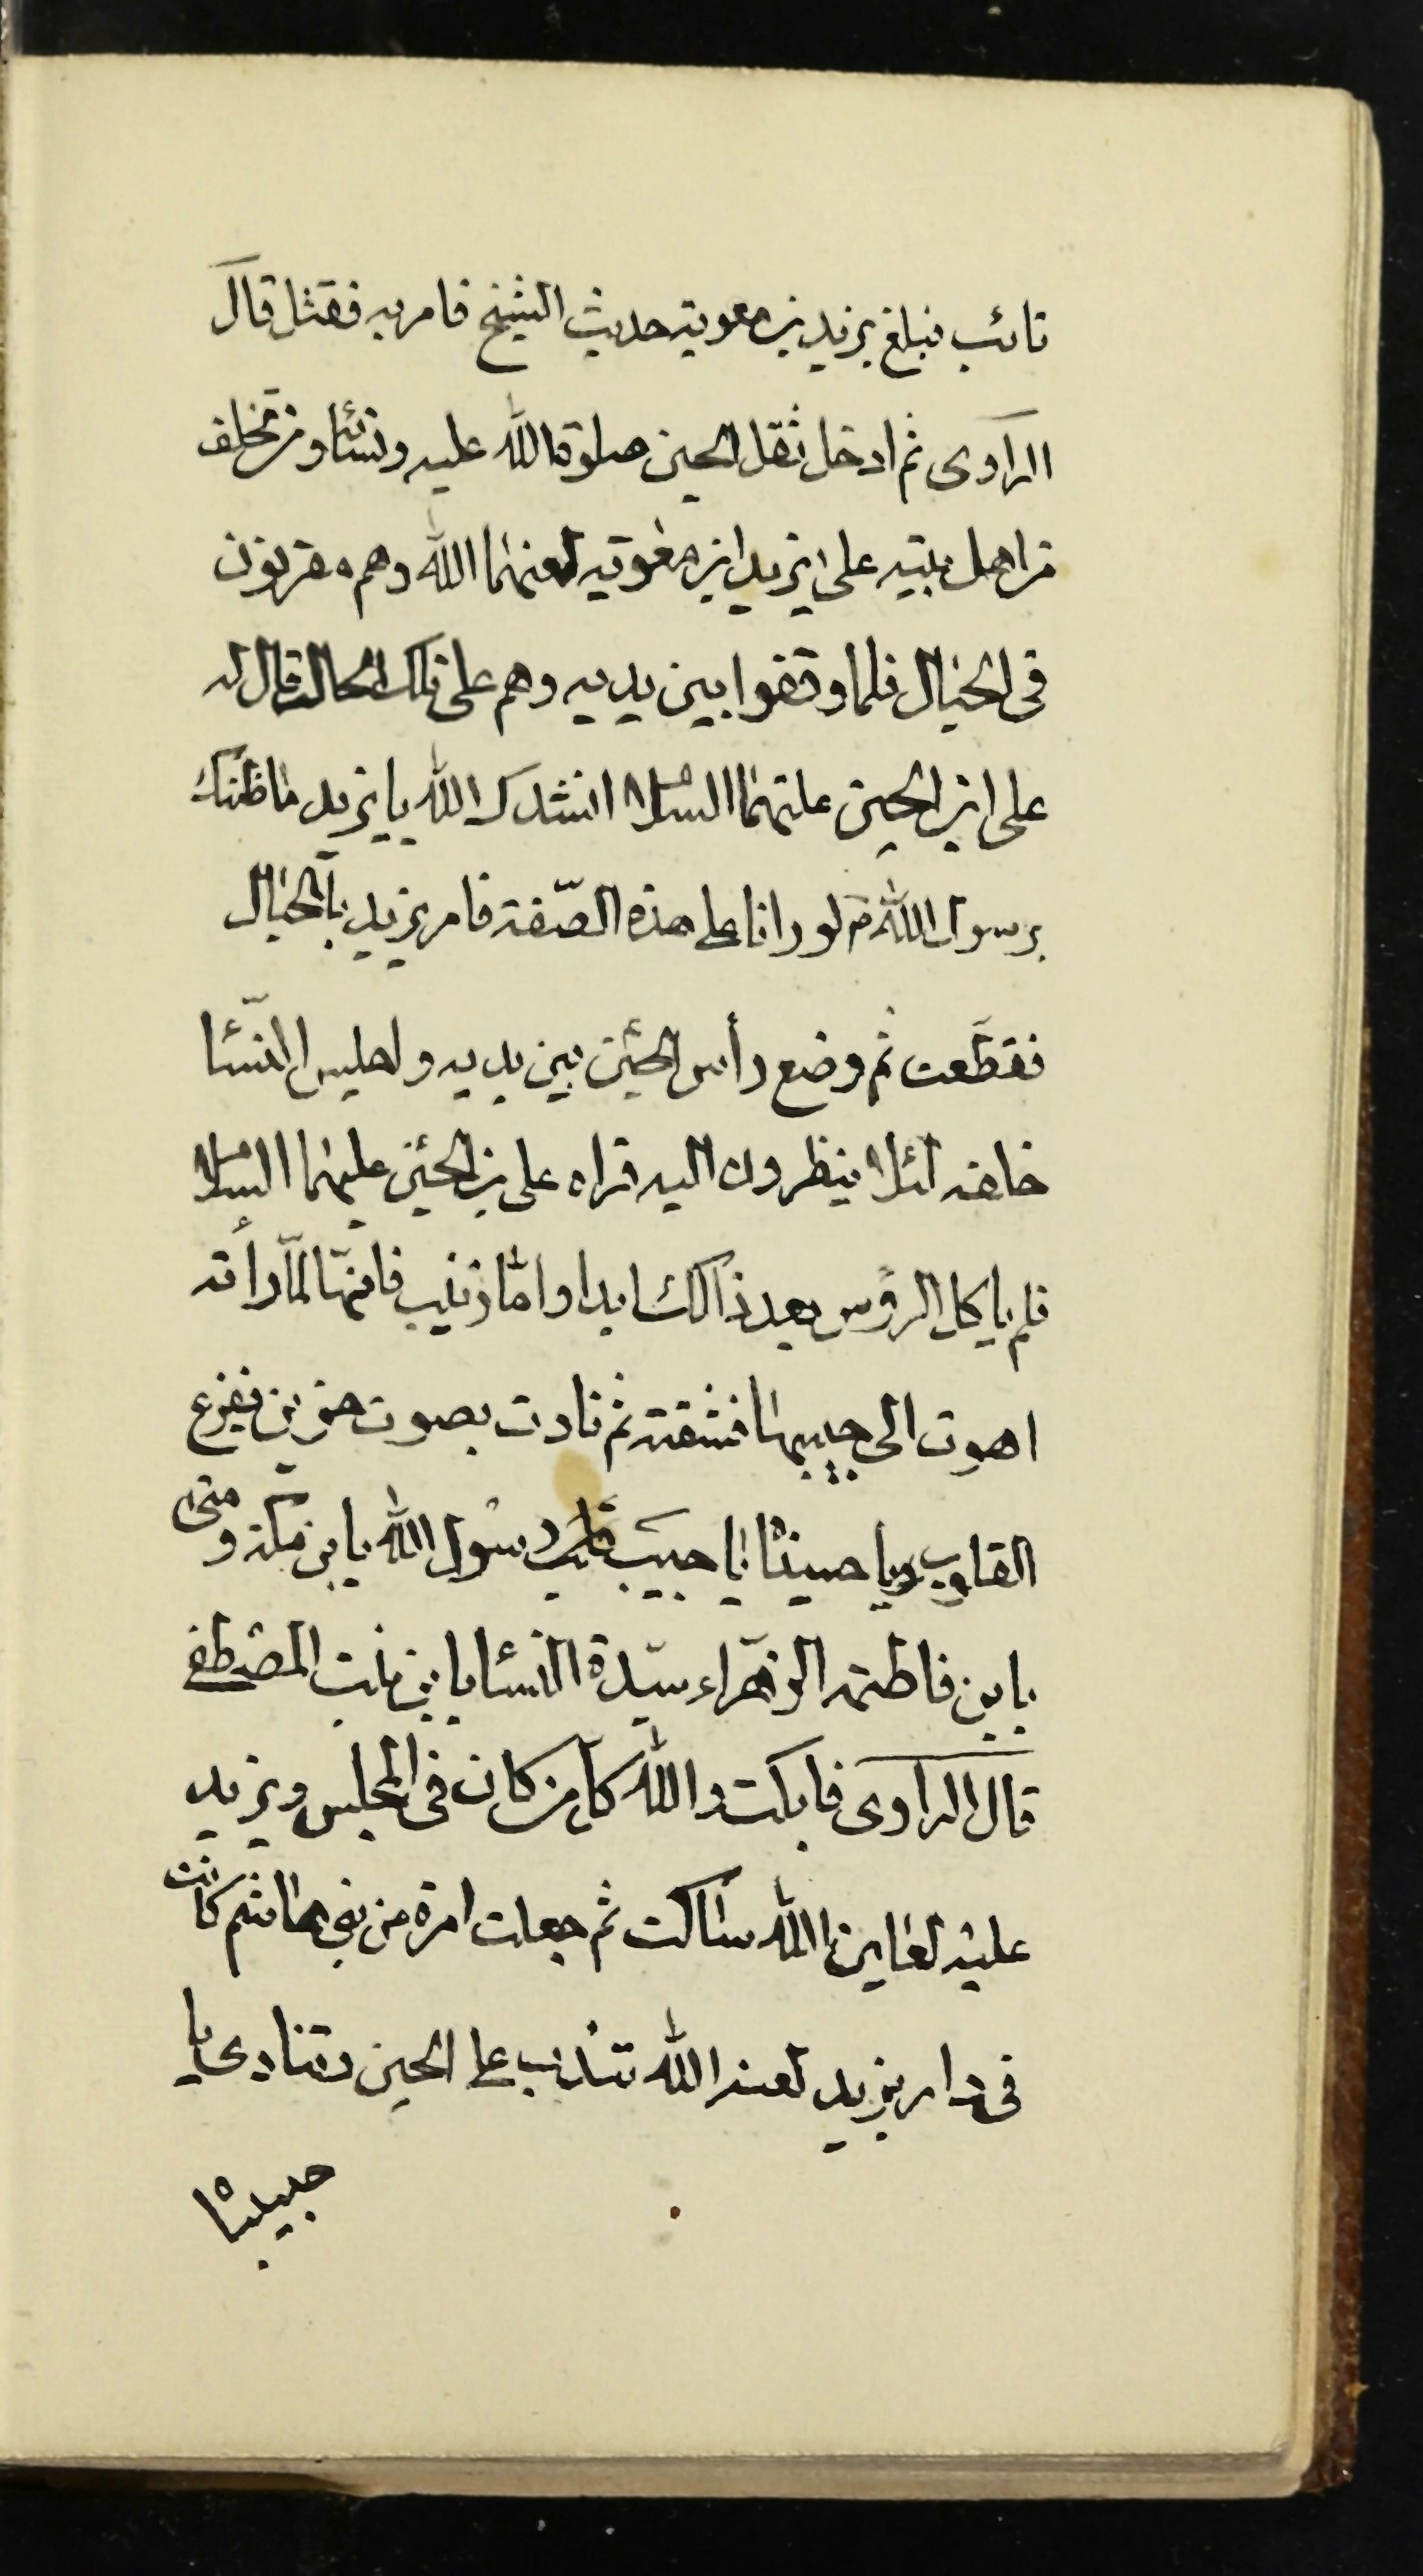 تائب فبلغ يزيد بن معوية حديث الشيخ فامر به فقتل قال
الراوى ثم ادخل ثقل الحسين صلوة الله عليه ونسائه ومن تخلف
من اهل بيته على يزيد ابن معوية لعنهما الله وهم مقرنون
فى الحبال فلما وقفوا بين يديه وهم على تلك الحالة قال له
على ابن الحسين عليهما السلام انشدك الله يا يزيد ما ظنك
برسول الله ص لو رانا على هذه الصّفة فامر يزيد بالحبال
فقطّعت ثم وضع رأس الحسين بين يديه واجلس النّساء
خلفه لئلا ينظرون اليه فراه على بن الحسين عليهما السلام
فلم ياكل الرؤس بعد ذالك ابدا وامّا زينب فانهّا لمّا رأته
اهوت الى جيبها فشقته ثم نادت بصوت حزين يفزع
القلوب يا حسيناه يا حبيب قلب رسول الله يا بن مكّة ومنى
يا بن فاطمة الزهّراء سيّدة النساء يا بن بنت المصطفى
قال الراوى فابكت والله كل من كان فى المجلس ويزيد
عليه لعاين الله ساكت ثم جعلت امرة من بنى هاشم كانت
فى دار يزيد لعنه الله تندب على الحسين وتنادى يا
حبيباه